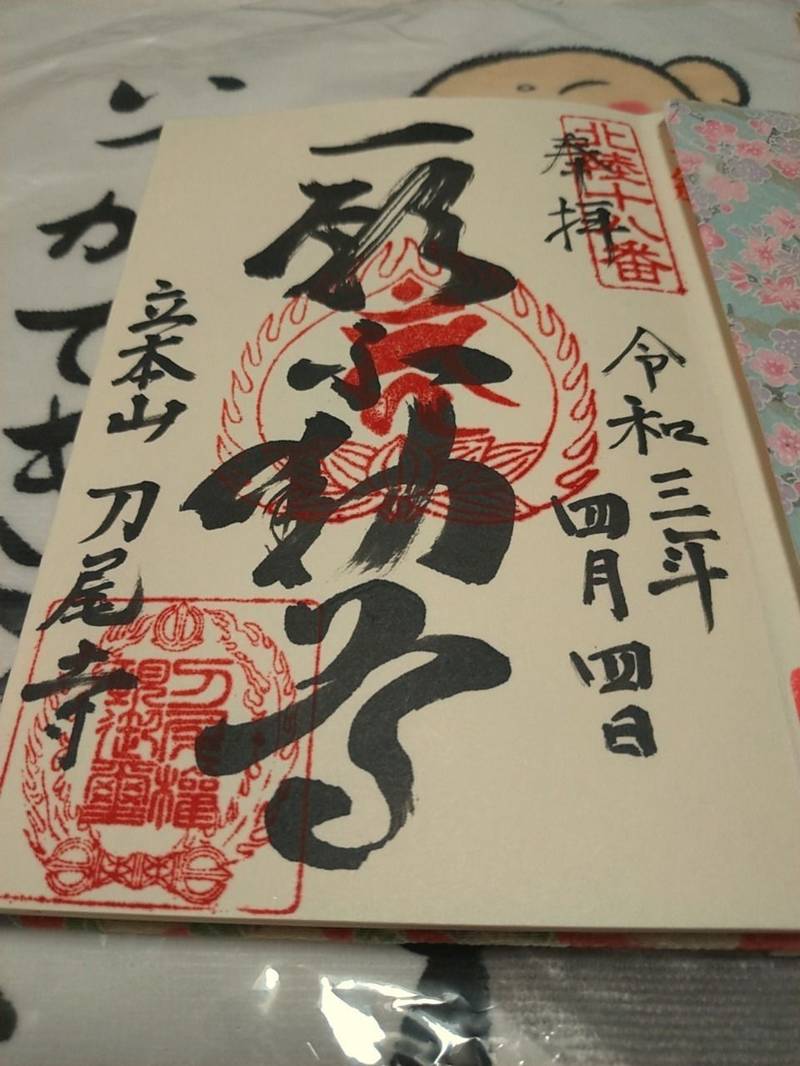 北陸十八番
奉拝
令和三年
四月四日
一願不動尊
立本山 刀尾寺
刀尾権
現御璽
いつ
かて